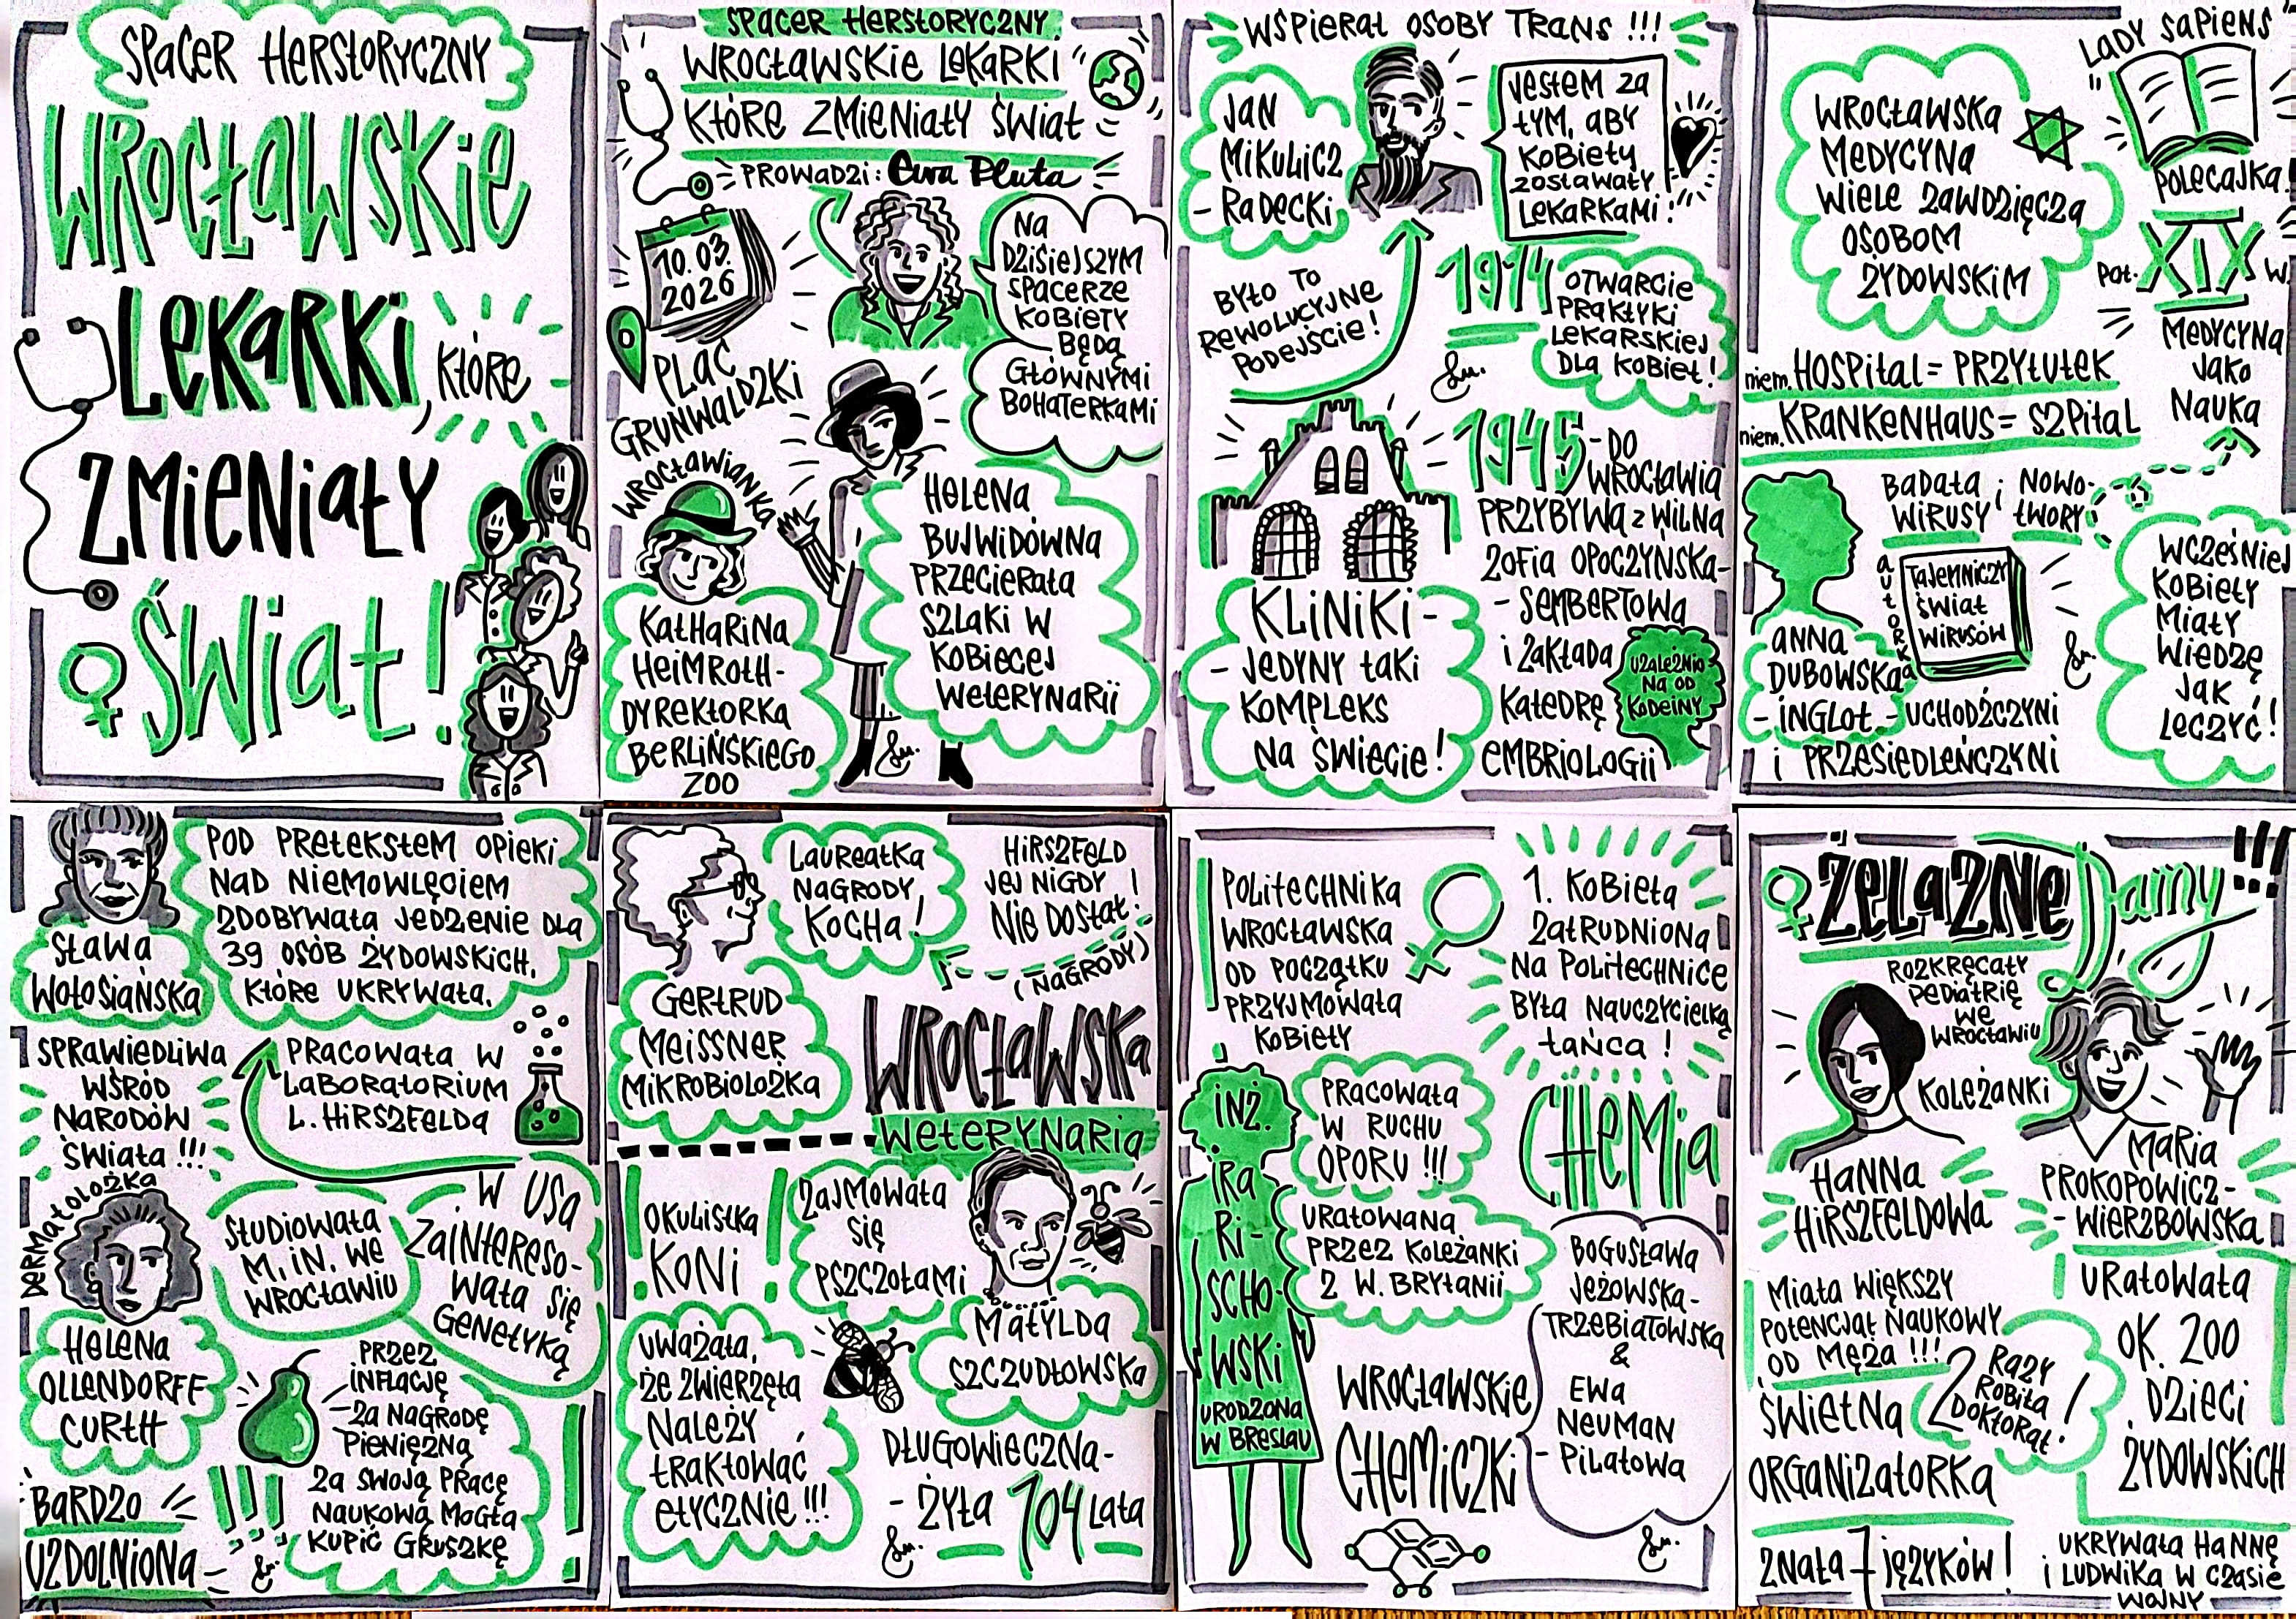 SPACER HERSTORYCZNY
WROCŁAWSKIE
LEKARKI, KTÓRE
ZMIENIAŁY
ŚWIAT!
SPACER HERSTORYCZNY
WROCŁAWSKIE LEKARKI
KTÓRE ZMIENIAŁY ŚWIAT
PROWADZI: Ewa Pluta
10.03.
2026
PLAC
GRUNWALDZKI
NA
DZISIEJSZYM
SPACERZE
KOBIETY
BĘDĄ
GŁÓWNYMI
BOHATERKAMI
WROCŁAWIANKA
KATHARINA
HEIMROTH-
DYREKTORKA
BERLIŃSKIEGO
ZOO
HELENA
BUJWIDÓWNA
PRZECIERAŁA
SZLAKI W
KOBIECEJ
WETERYNARII
WSPIERAŁ OSOBY TRANS !!!
JAN
MIKULICZ
- RADECKI
JESTEM ZA
TYM, ABY
KOBIETY
ZOSTAWAŁY
LEKARKAMI!
BYŁO TO
REWOLUCYJNE
PODEJŚCIE!
1914 OTWARCIE
PRAKTYKI
LEKARSKIEJ
DLA KOBIET!
KLINIKI -
- JEDYNY TAKI
KOMPLEKS
NA ŚWIECIE!
1945 - DO
WROCŁAWIA
PRZYBYWA Z WILNA
ZOFIA OPOCZYŃSKA-
- SEMBERTOWA
I ZAKŁADA
KATEDRĘ
EMBRIOLOGII
UZALEŻNIO
NA OD
KODEINY
"LADY SAPIENS"
POLECAJKA
WROCŁAWSKA
MEDYCYNA
WIELE ZAWDZIĘCZA
OSOBOM
ŻYDOWSKIM
POŁ. XIX W.
MEDYCYNA
JAKO
NAUKA
niem. HOSPITAL = PRZYTUŁEK
niem. KRANKENHAUS = SZPITAL
BADAŁA
WIRUSY i NOWO-
TWORY
AUTORKA
TAJEMNICZY
ŚWIAT
WIRUSÓW
ANNA
DUBOWSKA
- INGLOT - UCHODŹCZYNI
i PRZESIEDLEŃCZYNI
WCZEŚNIEJ
KOBIETY
MIAŁY
WIEDZĘ
JAK
LECZYĆ!
SŁAWA
WOŁOSIAŃSKA
POD PRETEKSTEM OPIEKI
NAD NIEMOWLĘCIEM
ZDOBYWAŁA JEDZENIE DLA
39 OSÓB ŻYDOWSKICH,
KTÓRE UKRYWAŁA.
SPRAWIEDLIWA
WŚRÓD
NARODÓW
ŚWIATA !!!
PRACOWAŁA W
LABORATORIUM
L. HIRSZFELDA
DERMATOLOŻKA
HELENA
OLLENDORFF
CURTH
STUDIOWAŁA
M. IN. WE
WROCŁAWIU
W USA
ZAINTERESO-
WAŁA SIĘ
GENETYKĄ
BARDZO
UZDOLNIONA
!!!
PRZEZ
INFLACJĘ
ZA NAGRODĘ
PIENIĘŻNĄ
ZA SWOJĄ PRACĘ
NAUKOWĄ MOGŁA
KUPIĆ GRUSZKĘ
!
LAUREATKA
NAGRODY
KOCHA!
HIRSZFELD
JEJ NIGDY
NIE DOSTAŁ!
(NAGRODY)
GERTRUD
MEISSNER
MIKROBIOLOŻKA
WROCŁAWSKA
WETERYNARIA
OKULISTKA
KONI!
ZAJMOWAŁA
SIĘ
PSZCZOŁAMI
UWAŻAŁA,
ŻE ZWIERZĘTA
NALEŻY
TRAKTOWAĆ
ETYCZNIE !!!
MATYLDA
SZCZUDŁOWSKA
DŁUGOWIECZNA-
- ŻYŁA 104 LATA
POLITECHNIKA
WROCŁAWSKA
OD POCZĄTKU
PRZYJMOWAŁA
KOBIETY
1. KOBIETA
ZATRUDNIONA
NA POLITECHNICE
BYŁA NAUCZYCIELKĄ
TAŃCA!
INŻ.
IRA
RI-
SCHO-
WSKI
URODZONA
W BRESLAU
PRACOWAŁA
W RUCHU
OPORU !!!
URATOWANA
PRZEZ KOLEŻANKI
Z W. BRYTANII
CHEMIA
WROCŁAWSKIE
CHEMICZKI
BOGUSŁAWA
JEŻOWSKA-
TRZEBIATOWSKA
&
EWA
NEUMAN
- PILATOWA
ŻELAZNE Damy !!!
ROZKRĘCAŁY
PEDIATRIĘ
WE
WROCŁAWIU
KOLEŻANKI
HANNA
HIRSZFELDOWA
MIAŁA WIĘKSZY
POTENCJAŁ NAUKOWY
OD MĘŻA !!!
ŚWIETNA
ORGANIZATORKA
2 RAZY
ROBIŁA
DOKTORAT!
ZNAŁA 7 JĘZYKÓW!
MARIA
PROKOPOWICZ-
- WIERZBOWSKA
URATOWAŁA
OK. 200
DZIECI
ŻYDOWSKICH
UKRYWAŁA HANNĘ
i LUDWIKA W CZASIE
WOJNY